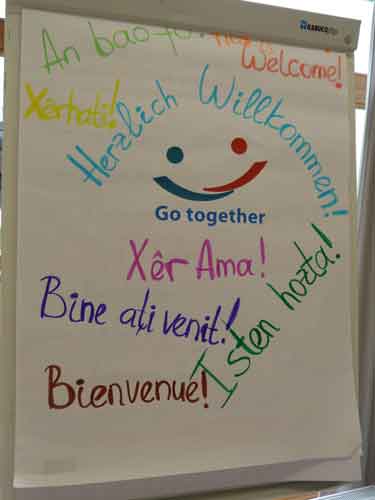 An bao
Welcome!
Xêrhati!
Herzlich Willkommen!
Go together
Xêr Ama!
Bine ați venit!
Isten hozta!
Bienvenue!